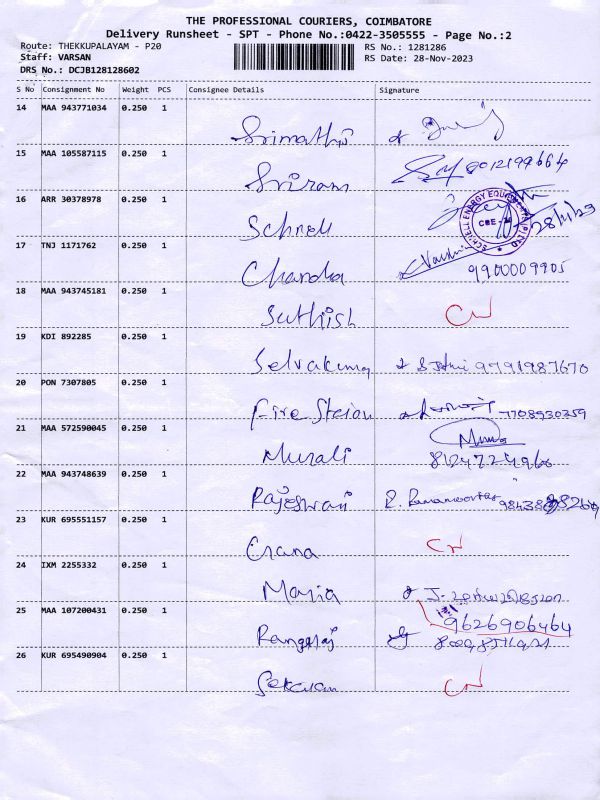 THE PROFESSIONAL COURIERS, COIMBATORE
Delivery Runsheet - SPT - Phone No.:0422-3505555 - Page No.:2
Route: THEKKUPALAYAM - P20
RS No.: 1281286
Staff: VARSAN
RS Date: 28-Nov-2023
DRS No.: DCJB128128602
S No Consignment No Weight PCS Consignee Details Signature
14 MAA 943771034 0.250 1
Srimathi
15 MAA 105587115 0.250 1
Sriram
16 ARR 30378978 0.250 1
Schnell 28/11/23
17 TNJ 1171762 0.250 1
Chandra 9900009905
18 MAA 943745181 0.250 1
Suthish CN
19 KDI 892285 0.250 1
Selvakumar 9791987670
20 PON 7307805 0.250 1
Fire Staion 7708930259
21 MAA 572590045 0.250 1
Murali
22 MAA 943748639 0.250 1
Rajeswari
23 KUR 695551157 0.250 1
Erana CN
24 IXM 2255332 0.250 1
Maria
25 MAA 107200431 0.250 1
9626906464
Rangaraj
26 KUR 695490904 0.250 1
Sekaran CN